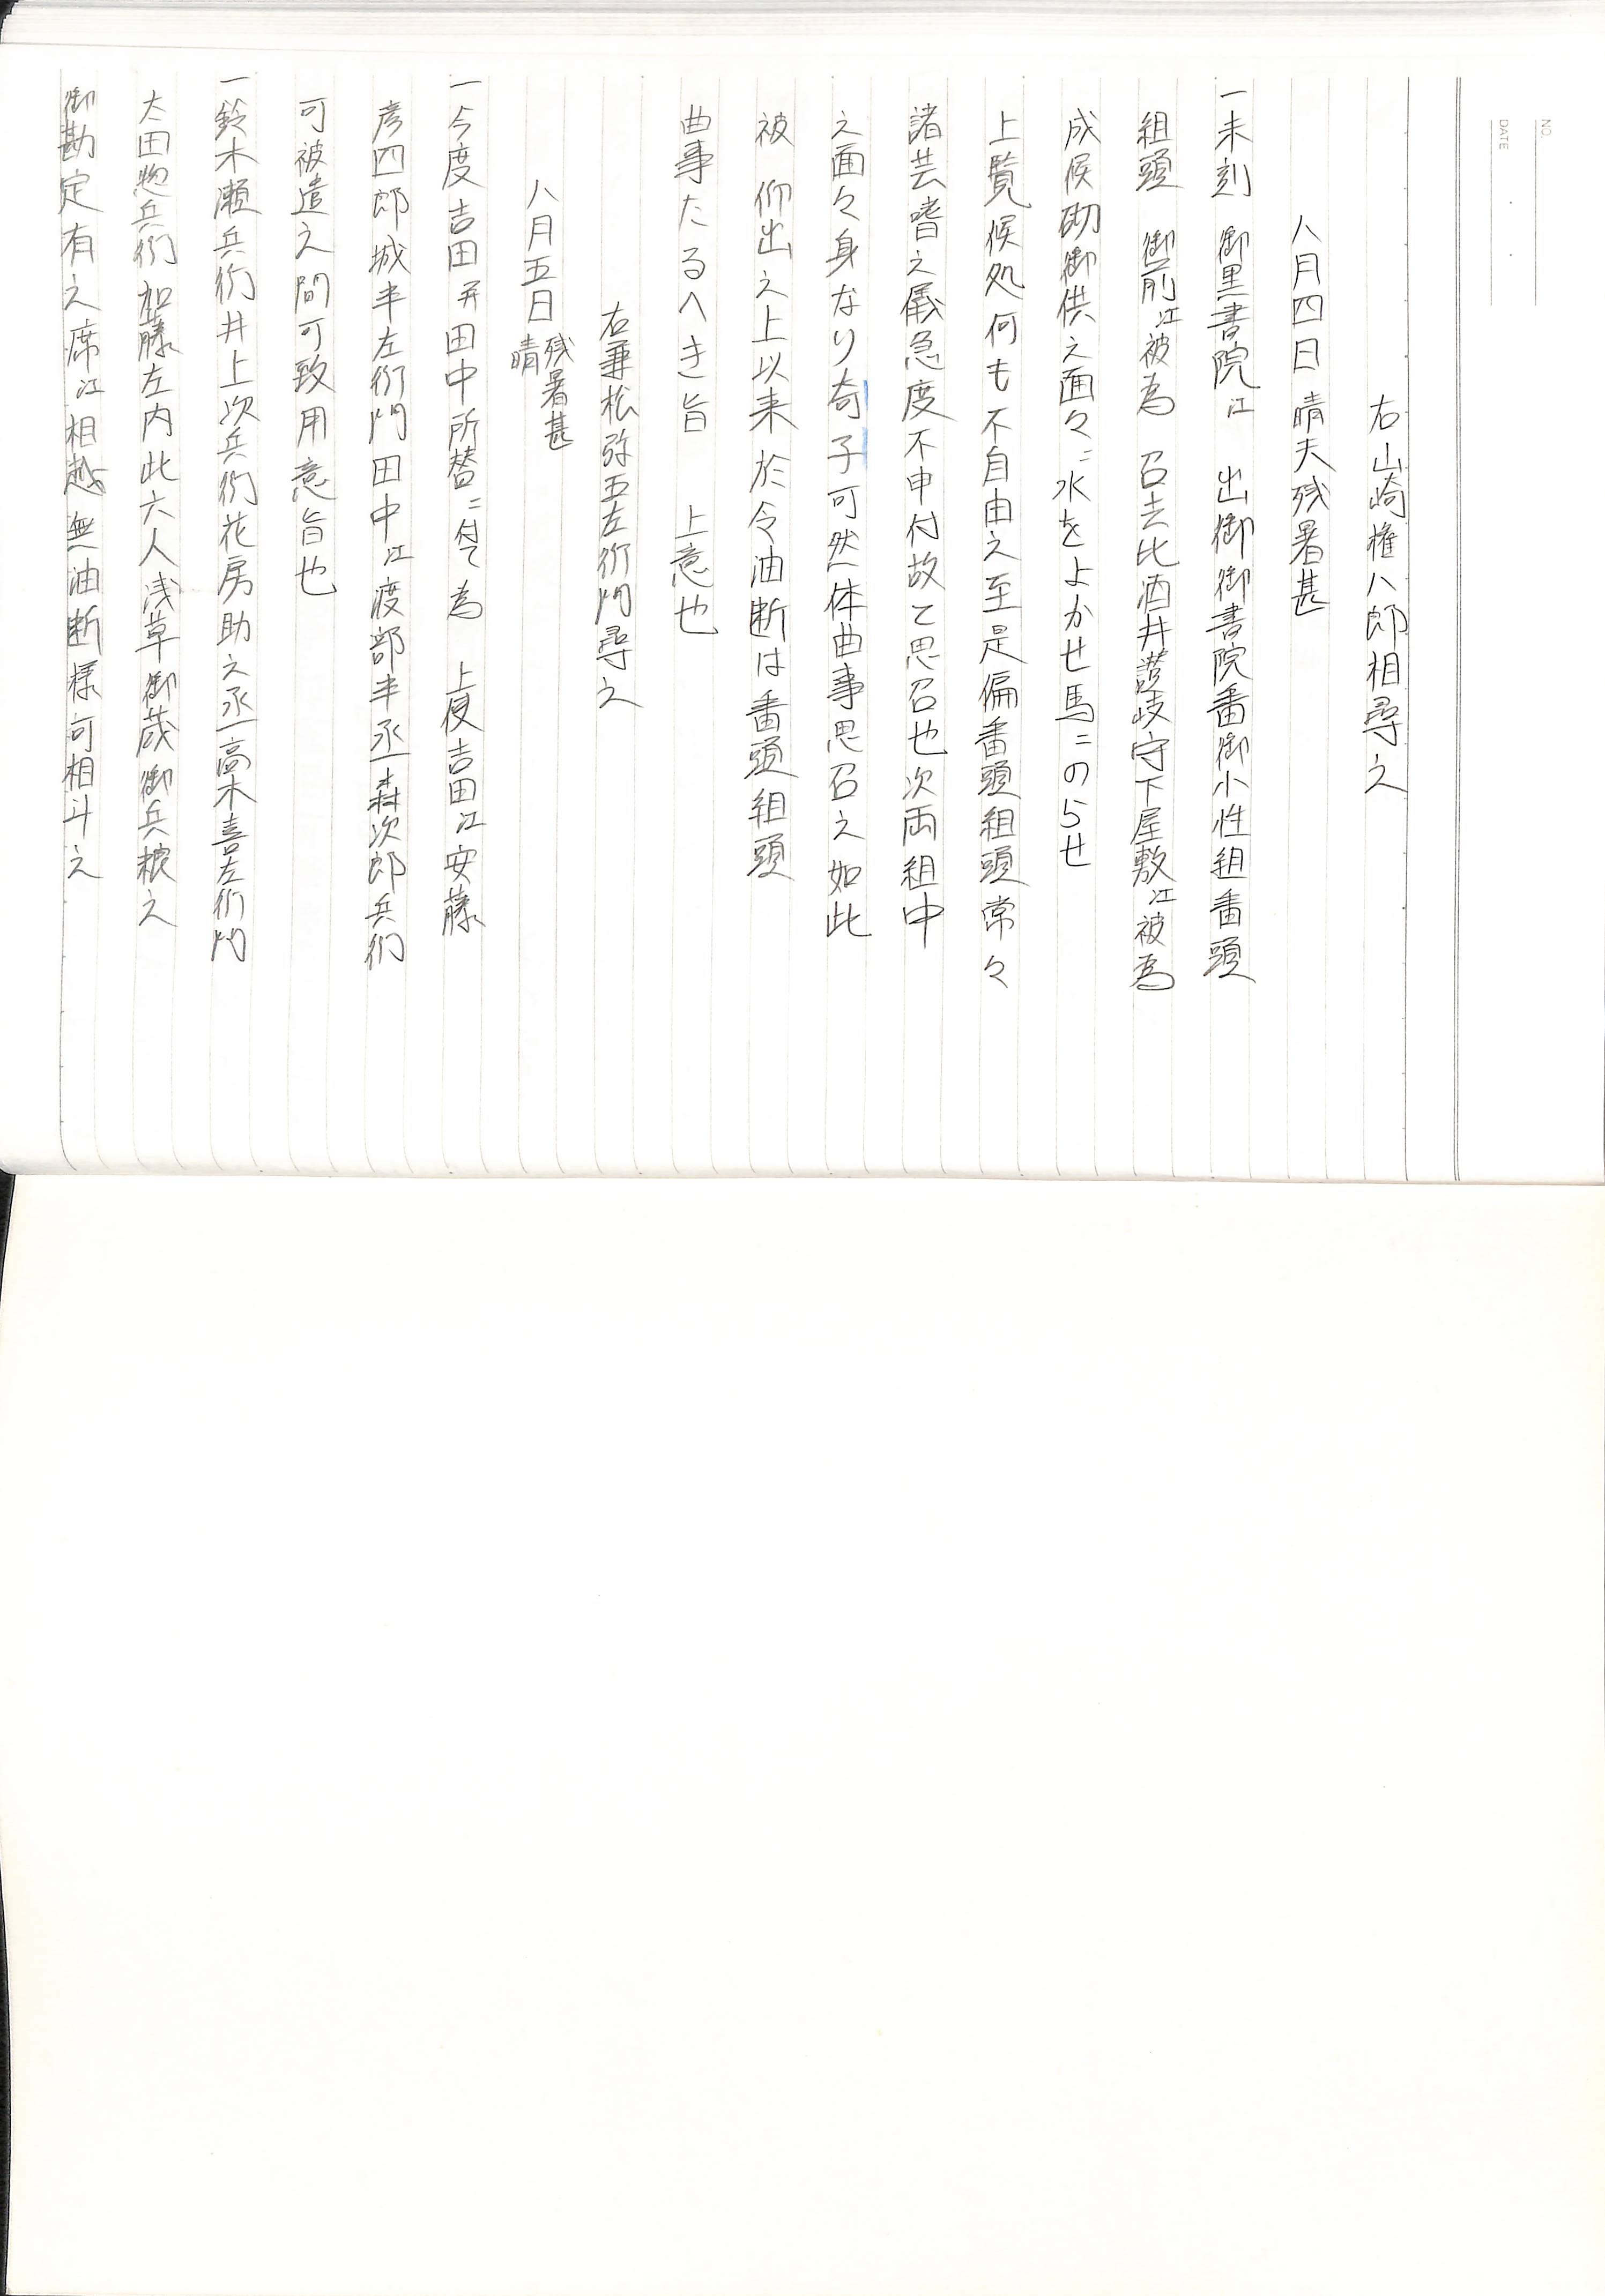 NO.
DATE
右山崎権八郎相尋之
八月四日 晴天残暑甚
一未刻 御黒書院江 出御御書院番御小性組番頭
組頭 御前江被為 召去比酒井讃岐守下屋敷江被為
成候砌御供之面々ニ水をよかせ馬ニのらせ
上覧候処何も不自由之至是偏番頭組頭常々
諸芸嗜之儀急度不申付故と思召也次両組中
之面々身なり奇子可然体曲事思召之如此
被 仰出之上以来於令油断は番頭組頭
曲事たるへき旨 上意也
右兼松弥五左衛門尋之
八月五日 残暑甚晴
一今度吉田并田中所替ニ付て為 上使吉田江安藤
彦四郎城半左衛門田中江渡部半丞森次郎兵衛
可被遣之間可致用意旨也
一鈴木瀬兵衛井上次兵衛花房助之丞高木喜左衛門
太田惣兵衛加藤左内此六人浅草御蔵御兵粮之
御勘定有之席江相越無油断様可相斗之